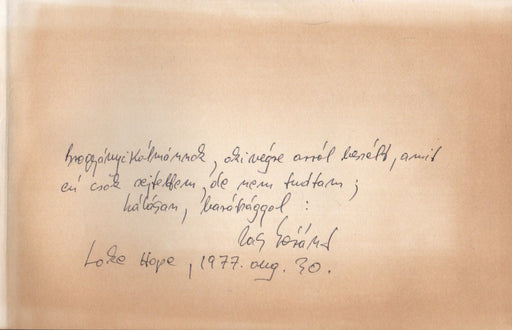 Brogyányi Kálmánnak, aki végre arról beszélt, amit
én csak sejtettem, de nem tudtam;
hálásan, barátsággal :
Lóránt
Lake Hope, 1977. aug. 30.